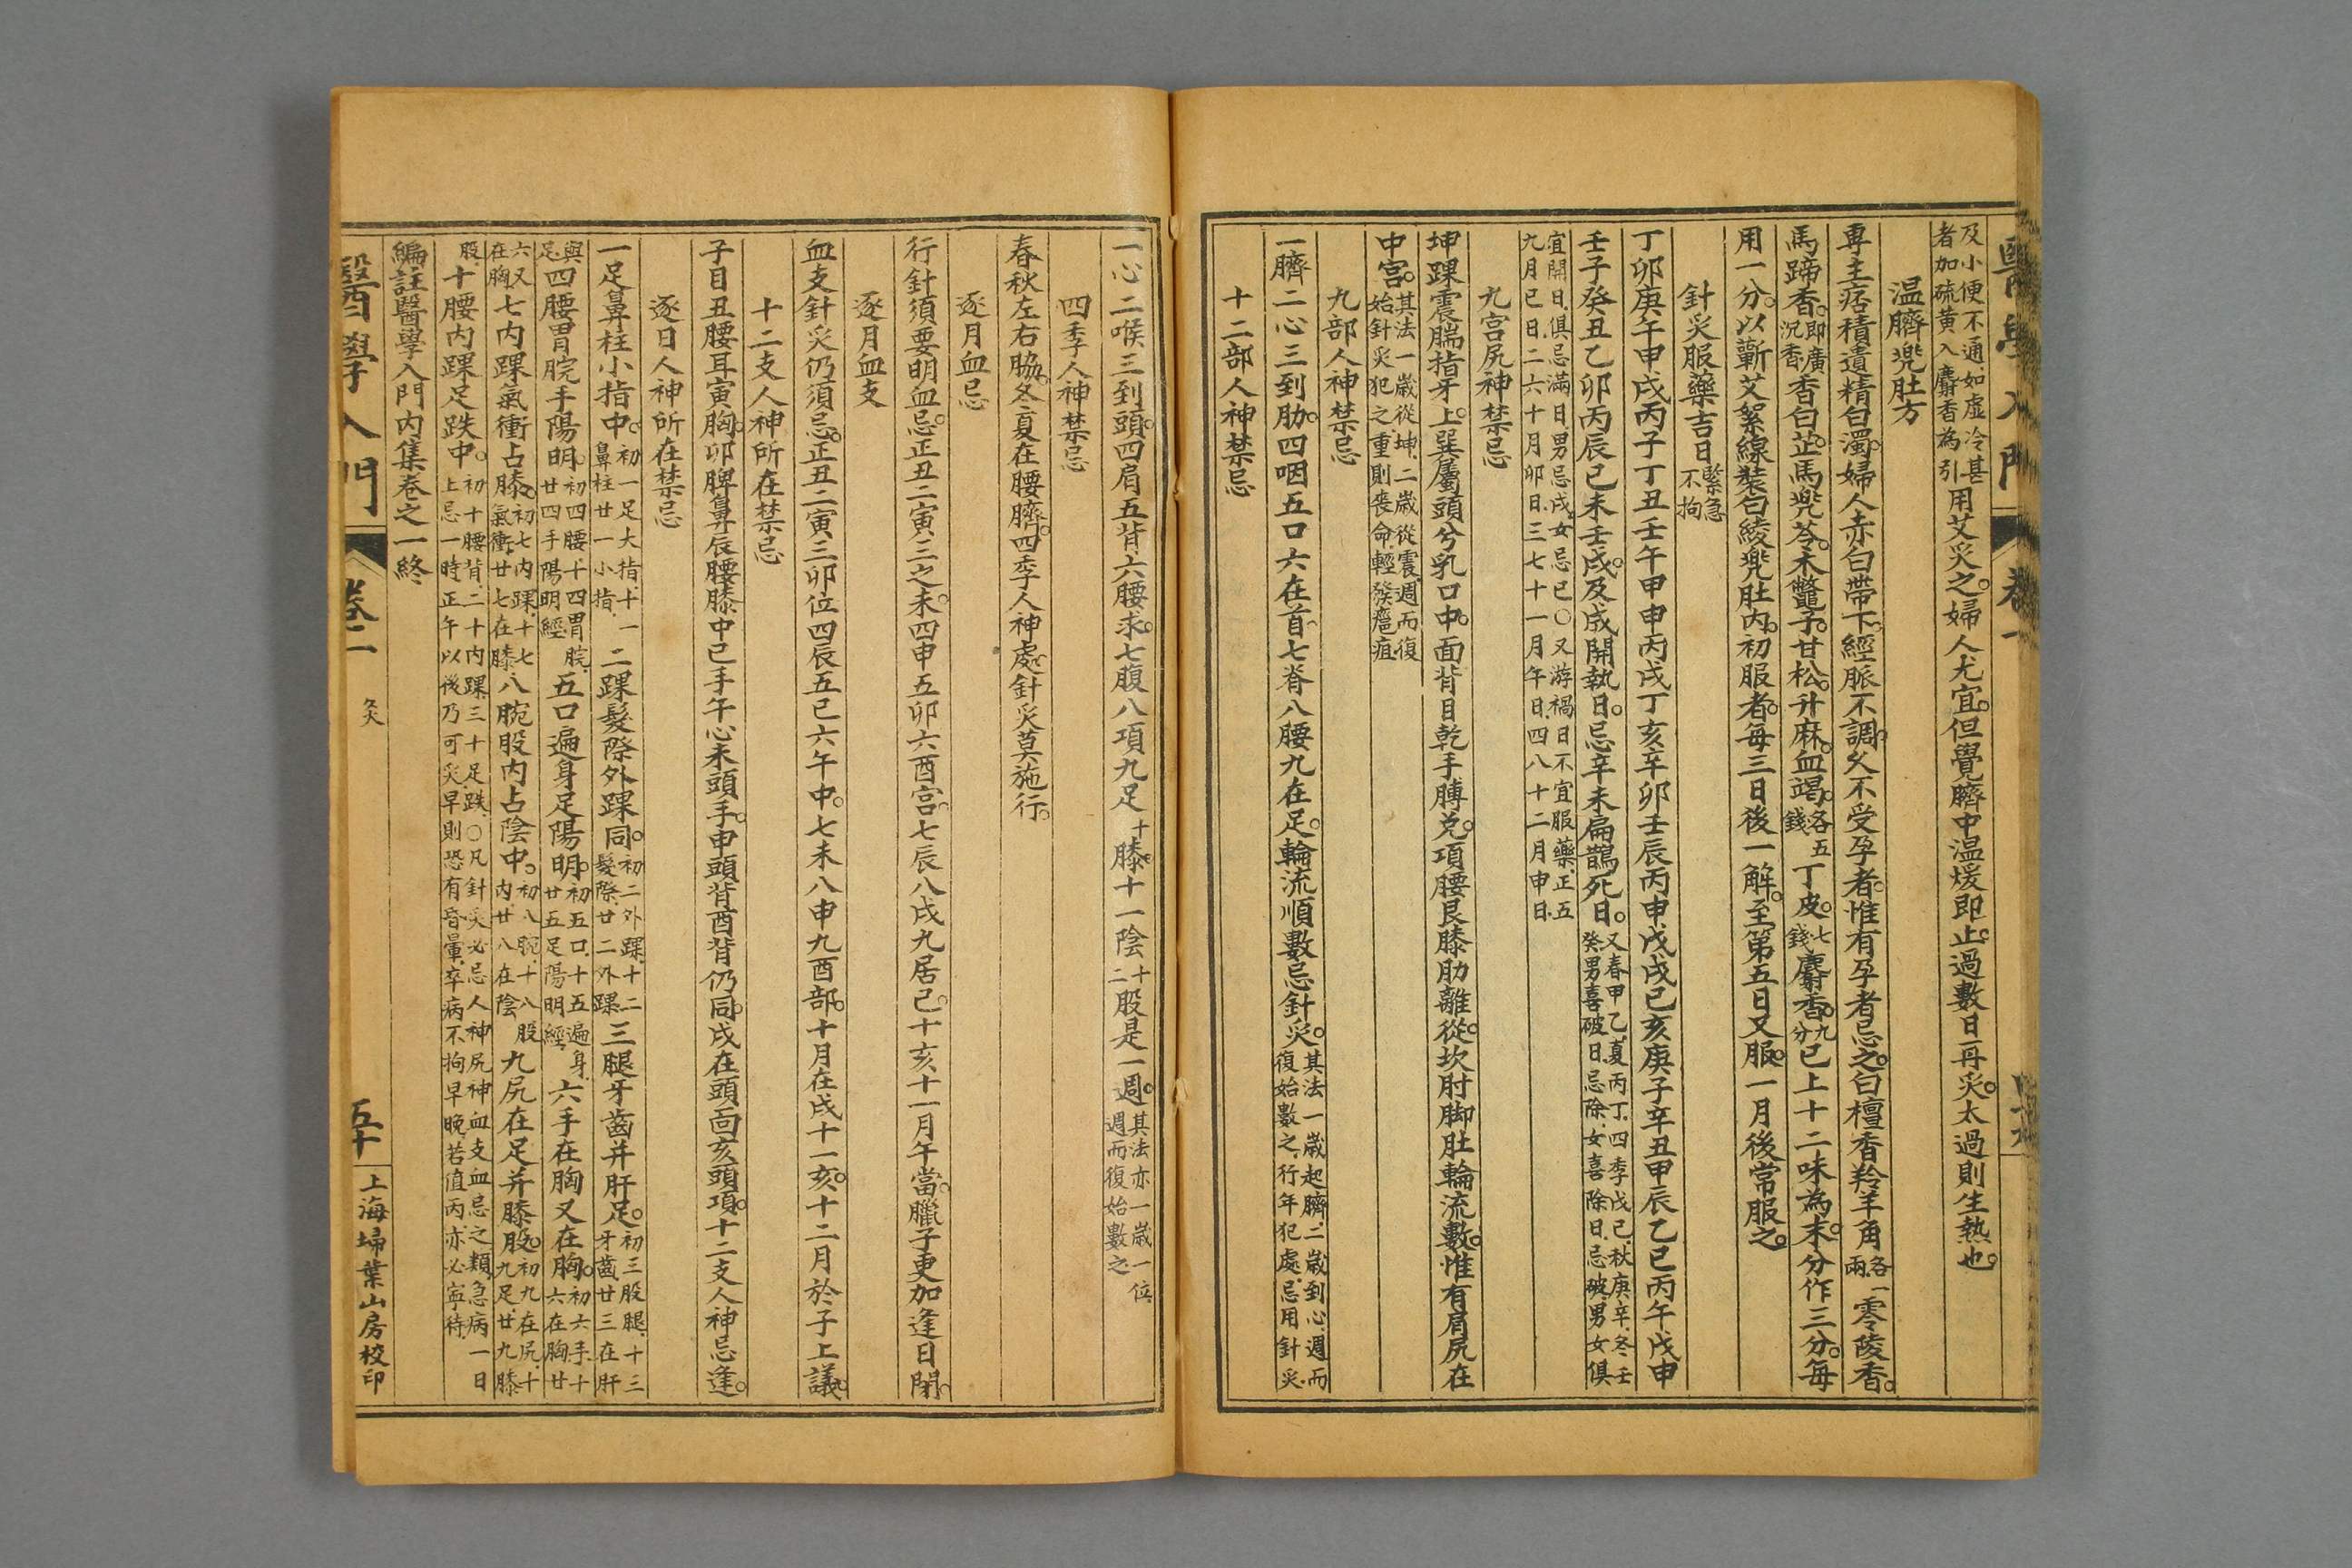 及小便不通如虛冷甚
者加硫黄入麝香為引
用艾灸之婦人尤宜但覺臍中温煖即止過數日再灸太過則生熱也
温臍兠肚方
專主痞積遺精白濁婦人赤白帶下經脈不調久不受孕者惟有孕者忌之白檀香羚羊角各一兩零陵香
馬蹄香即廣沉香香白芷馬兠苓木鼈子甘松升麻血竭各五錢丁皮七錢麝香九分已上十二味為末分作三分每
用一分以蘄艾絮線裝白綾兠肚内初服者每三日後一解至第五日又服一月後常服之
針灸服藥吉日緊急不拘
丁卯庚午甲戌丙子丁丑壬午甲申丙戌丁亥辛卯壬辰丙申戊戌己亥庚子辛丑甲辰乙巳丙午戊申
壬子癸丑乙卯丙辰己未壬戌及成開執日忌辛未扁鵲死日又春甲乙夏丙丁四季戊己秋庚辛冬壬癸男喜破日忌除女喜除日忌破男女俱
宜開日俱忌滿日男忌戌女忌巳○又游禍日不宜服藥正五
九月巳日二六十月卯日三七十一月午日四八十二月申日
九宫尻神禁忌
坤踝震腨指牙上巽屬頭兮乳口中面背目乾手膊兑項腰艮膝肋離從坎肘脚肚輪流數惟有肩尻在
中宫其法一歲從坤二歲從震週而復始針灸犯之重則喪命輕發癰疽
九部人神禁忌
一臍二心三到肋四咽五口六在首七脊八腰九在足輪流順數忌針灸其法一歲起臍二歲到心週而復始數之行年犯處忌用針灸
十二部人神禁忌
一心二喉三到頭四肩五背六腰求七腹八項九足十膝十一陰十二股是一週其法亦一歲一位週而復始數之
四季人神禁忌
春秋左右脇冬夏在腰臍四季人神處針灸莫施行
逐月血忌
行針須要明血忌正丑二寅三之未四申五卯六酉宫七辰八戌九居已十亥十一月午當臘子更加逢日閉
逐月血支
血支針灸仍須忌正丑二寅三卯位四辰五巳六午中七未八申九酉部十月在戌十一亥十二月於子上議
十二支人神所在禁忌
子目丑腰耳寅胸卯脾鼻辰腰膝中巳手午心未頭手申頭背酉背仍同戌在頭面亥頭項十二支人神忌逢
逐日人神所在禁忌
一足鼻柱小指中初一足大指十一鼻柱廿一小指二踝髮際外踝同初二外踝十二髮際廿二外踝三腿牙齒并肝足初三股腿十三牙齒廿三在肝
與足四腰胃脘手陽明初四腰十四胃脘廿四手陽明經五口遍身足陽明初五口十五遍身廿五足陽明經六手在胸又在胸初六手十六在胸廿
六又在胸七内踝氣衝占膝初七内踝十七氣衝廿七在膝八腕股内占陰中初八腕十八股内廿八在陰九尻在足并膝股初九在尻十九足廿九膝
股十腰内踝足趺中初十腰背二十内踝三十足趺○凡針灸必忌人神尻神血支血忌之類急病一日上忌一時正午以後乃可灸早則恐有昏暈卒病不拘早晚若值丙亦必寧待
編註醫學入門内集卷之一終
醫學入門
卷二
灸
五十
上海埽葉山房校印